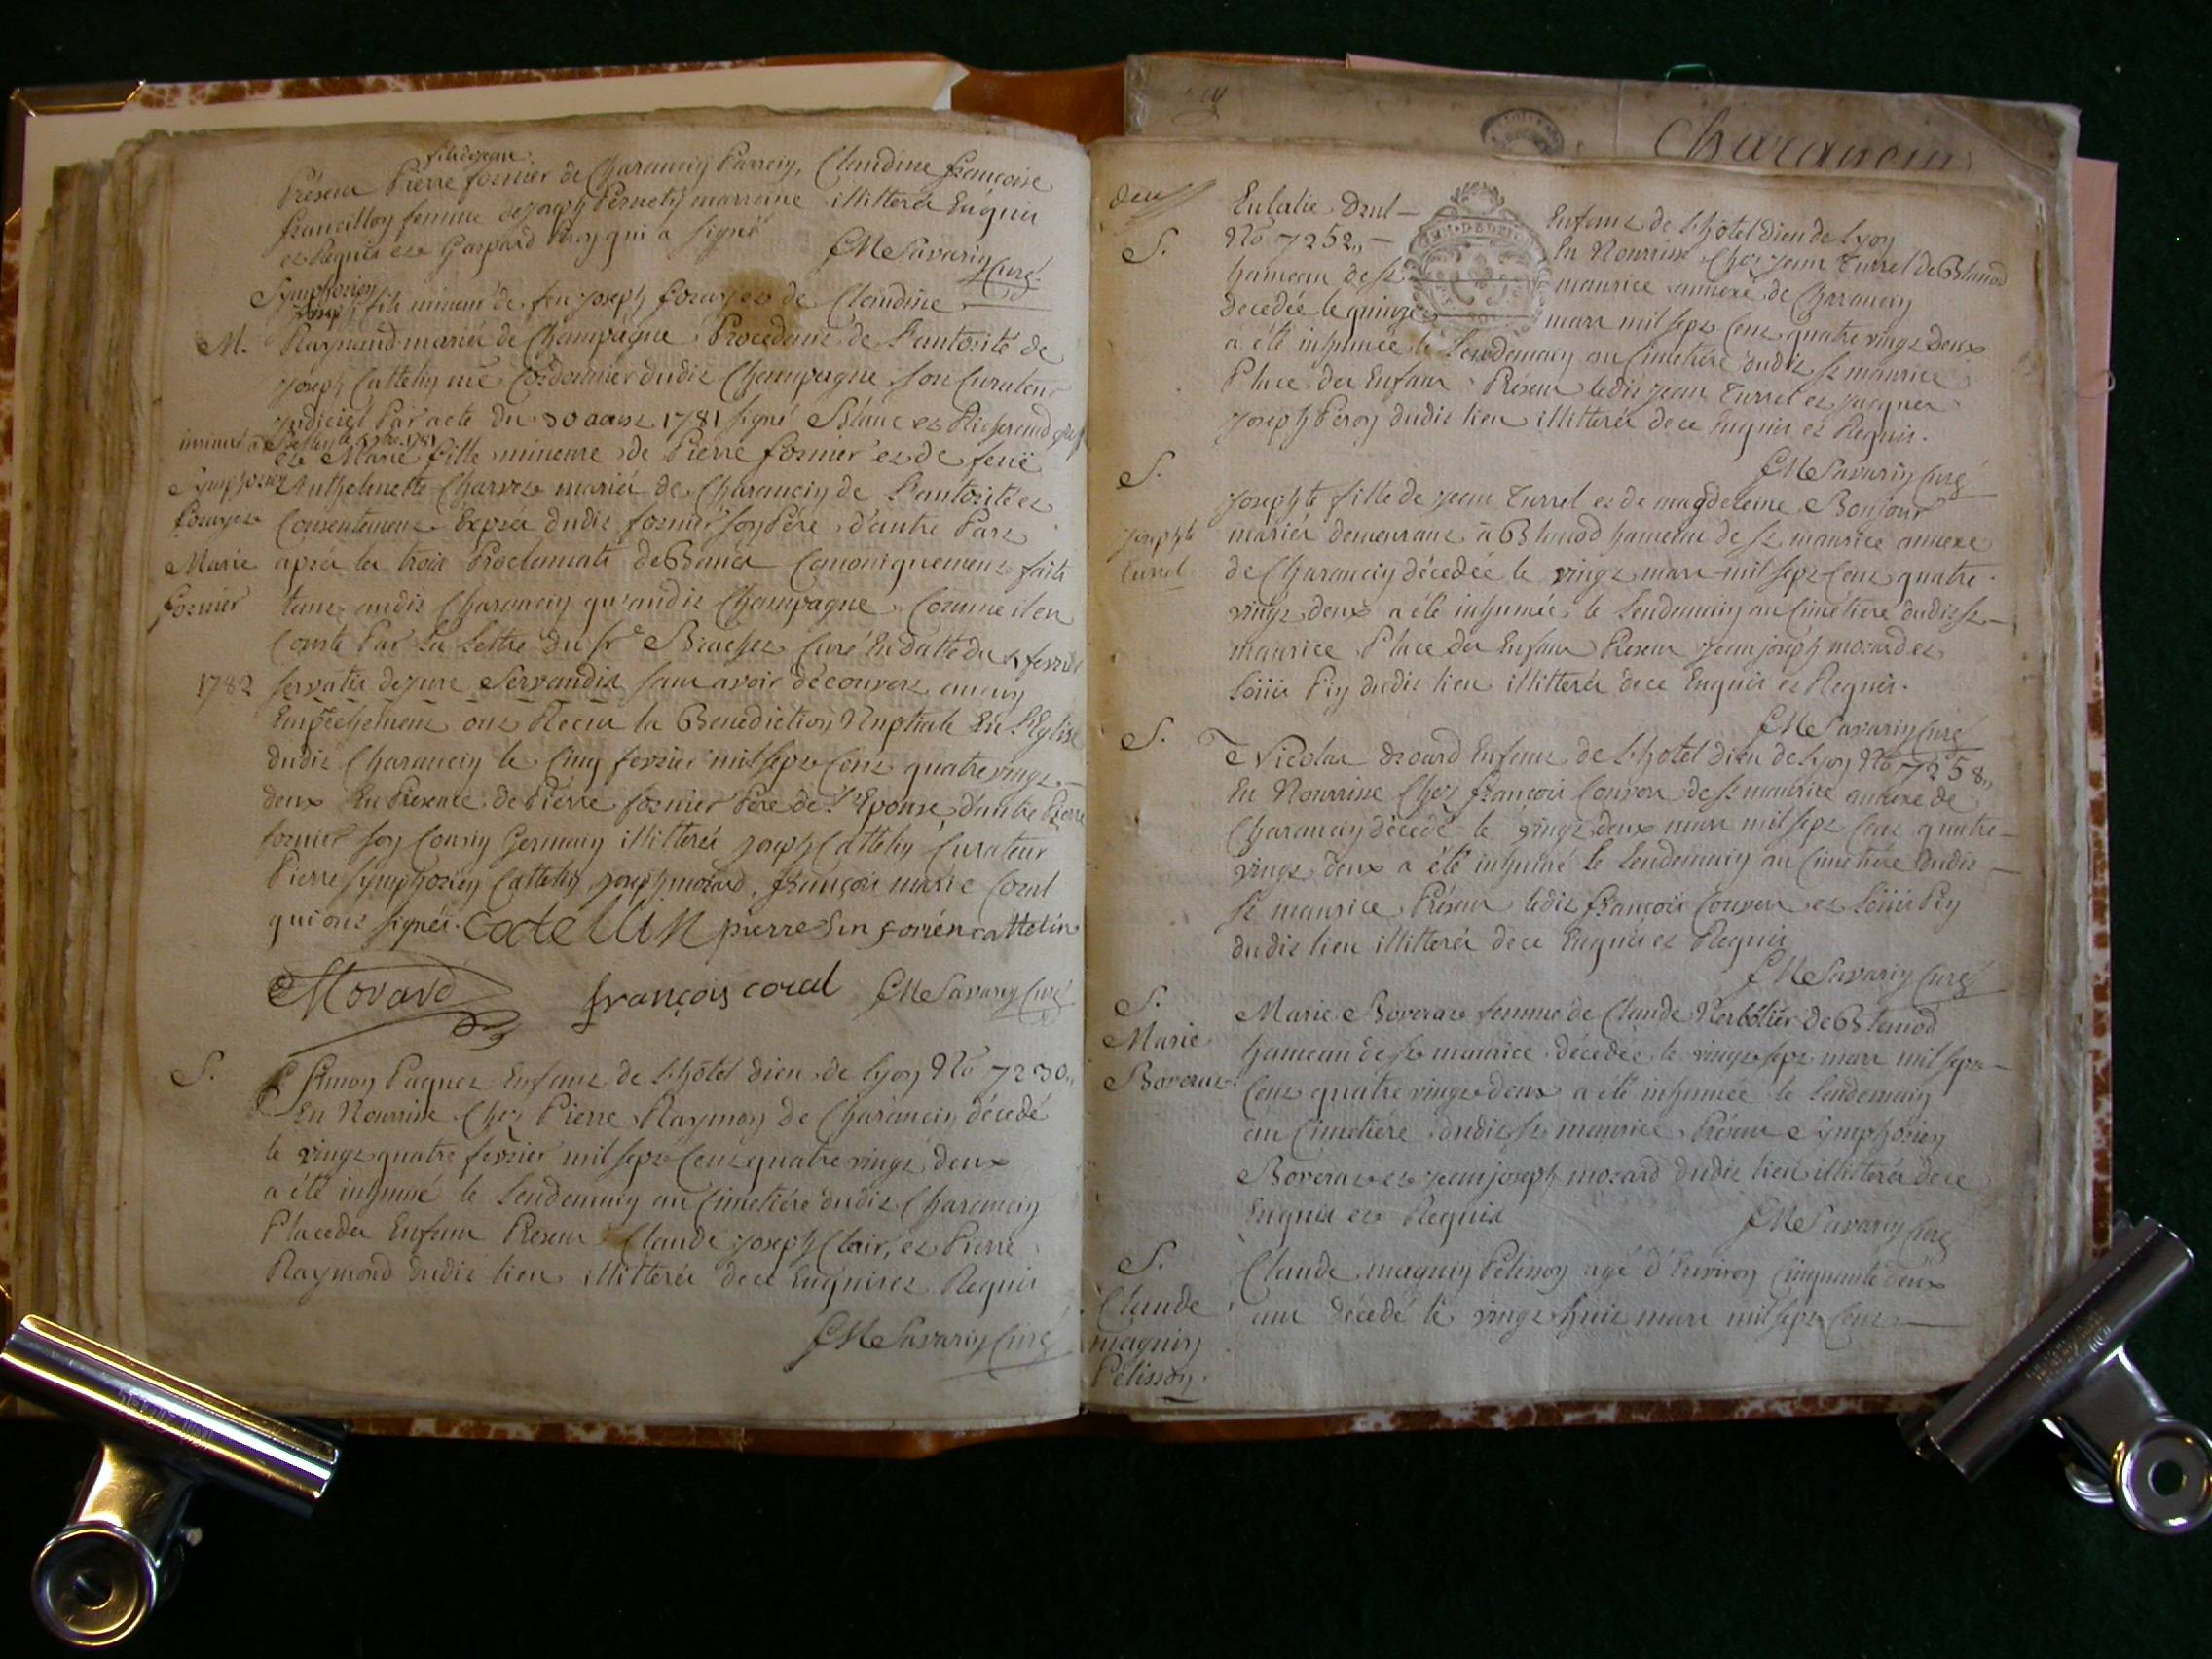 fils de jean
Présens Pierre fornier de Charancin Parrein, Claudine françoise
femme de joseph Pernety marreine illitterés Enquis
et Requis et Gaspard Peroy qui a signé
CM Savarin Curé
Symphorien
fils mineur de feu joseph et de Claudine
M. Raynaud mariés de Champagne Procédant de L'autorité de
joseph Cattelin mé Cordonnier dudit Champagne son Curateur
judiciel Par acte du 30 aoust 1781 signé Blanc et Richerand
insinué à
et Marie fille mineure de Pierre fornier et de feuë
Symphorien Anthelmette Charvet mariés de Charancin de L'autorité et
Consentement Exprès dudit fornier son Père d'autre Part
Marie après les trois Proclamats de Bans Canoniquement faits
fornier tant audit Charancin qu'audit Champagne Comme il en
Conste Par la Lettre du sr Curé En datte du fevrier
1782 servatis de jure Servandis sans avoir découvert aucun
Empêchement ont Receu la Bénédiction Nuptiale En L'Eglise
dudit Charancin le Cinq fevrier mil sept Cent quatre vingt
deux En Présence de Pierre fornier Père de L'Epouse, d'autre Pierre
fornier son Cousin Germain illitterés joseph Cattelin Curateur
Pierre Symphorien Cattelin, joseph morard, françois marie Coral
qui ont signés. Catellin pierre Sin forién cattelin
Morard françois coral CM Savarin Curé
S. Simon Paquet Enfant de L'hôtel dieu de Lyon No 7230,,
En Nourrisse Chez Pierre Raymon de Charancin décedé
le vingt quatre fevrier mil sept Cent quatre vingt deux
a été inhumé le Lendemain au Cimetière dudit Charancin
Place des Enfans Présens Claude joseph Clair, et Pierre
Raymond dudit lieu illitterés de ce Enquis et Requis
CM Savarin Curé
Charancin
deux
Eulalie Enfant de L'hôtel dieu de Lyon
S. No 7252,, En Nourrisse Chez jean Turrel de Blanod
hameau de St maurice annexe de Charancin
Decedée le quinze mars mil sept Cent quatre vingt deux
a été inhumée le Lendemain au Cimetière dudit St maurice
Place des Enfans Présens ledit jean Turrel et jacques
joseph Peroy dudit lieu illitterés de ce Enquis et Requis.
CM Savarin Curé
S. josephte fille de jean Turrel et de magdeleine Bonjour
josephte mariés demeurans à Blanod hameau de St maurice annexe
turrel de Charancin décedée le vingt mars mil sept Cent quatre
vingt deux a été inhumée le Lendemain au Cimetière dudit St
maurice Place des Enfans Présens jean joseph morard et
Loüis Pin dudit lieu illitterés de ce Enquis et Requis.
CM Savarin Curé
S. Nicolas Enfant de L'hôtel dieu de Lyon No 7258,,
En Nourrisse Chez françois de St maurice annexe de
Charancin décedé le vingt deux mars mil sept Cent quatre
vingt deux a été inhumé le Lendemain au Cimetière dudit
St maurice Présens ledit françois et Loüis Pin
dudit lieu illitterés de ce Enquis et Requis
CM Savarin Curé
S. Marie Boveraz femme de Claude de Blanod
Marie hameau de St maurice décedée le vingt sept mars mil sept
Boveraz Cent quatre vingt deux a été inhumée le Lendemain
au Cimetière dudit St maurice Présens Symphorien
Boveraz et jean joseph morard dudit lieu illitterés de ce
Enquis et Requis CM Savarin Curé
S. Claude magnin Pélisson agé d'Environ Cinquante deux
Claude ans décedé le vingt huit mars mil sept Cent
magnin
Pélisson.